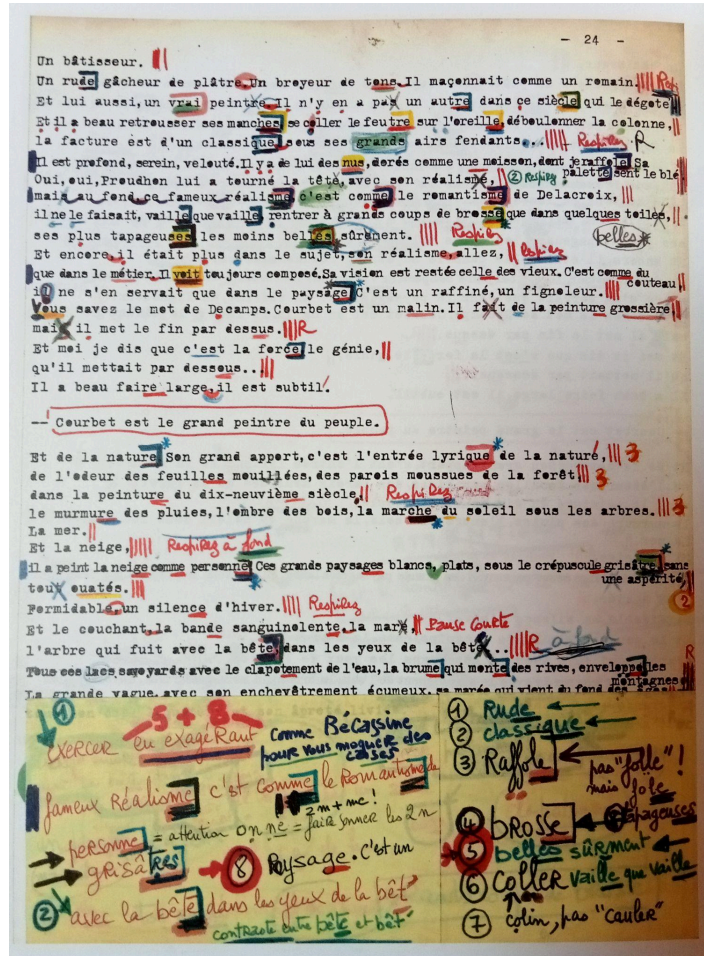 - 24 -
Un bâtisseur.
Un rude gâcheur de plâtre.Un broyeur de tons.Il maçonnait comme un romain.
Et lui aussi,un vrai peintre.Il n'y en a pas un autre dans ce siècle qui le dégote
Et il a beau retrousser ses manches se coller le feutre sur l'oreille,déboulonner la colonne,
la facture est d'un classique sous ses grands airs fendants... Respirez R
Il est profond, serein, velouté.Il y a de lui des nus,dorés comme une moisson,dont je raffole Sa
palette sent le blé
Oui,oui,Proudhon lui a tourné la tête,avec son réalisme, 2 Respirez
mais au fond,ce fameux réalisme c'est comme le romantisme de Delacroix,
il ne le faisait, vaille que vaille, rentrer à grands coups de brosse que dans quelques toiles,
ses plus tapageuses les moins belles sûrement. Respirez belles
Et encore,il était plus dans le sujet,son réalisme,allez, Respirez
que dans le métier.Il voit toujours composé.Sa vision est restée celle des vieux.C'est comme du
couteau
il ne s'en servait que dans le paysage C'est un raffiné, un fignoleur.
Vous savez le mot de Decamps.Courbet est un malin.Il fait de la peinture grossière
mais il met le fin par dessus. R
Et moi je dis que c'est la force le génie,
qu'il mettait par dessous..
Il a beau faire large,il est subtil.
-- Courbet est le grand peintre du peuple.
Et de la nature Son grand apport,c'est l'entrée lyrique de la nature, 3
de l'odeur des feuilles mouillées,des parois moussues de la forêt 3
dans la peinture du dix-neuvième siècle, Respirez
le murmure des pluies,l'ombre des bois,la marche du soleil sous les arbres. 3
La mer.
Et la neige, Respirez à fond
il a peint la neige comme personne Ces grands paysages blancs, plats, sous le crépuscule grisâtre,sans
une aspérité,
tout ouatés. 2
Formidable,un silence d'hiver. Respirez
Et le couchant,la bande sanguinolente,la mare, Pause courte
l'arbre qui fuit avec la bête dans les yeux de la bête... R à fond
Tous ces lacs savoyards avec le clapotement de l'eau,la brume qui monte des rives, enveloppe les
montagnes R
La grande vague,avec son enchevêtrement écumeux,sa marée qui vient du fond des âges
1 5 + 8
EXERCER en exagérant comme Bécassine
pour vous moquer des
fameux Réalisme c'est comme le Romantisme de
2 m + me!
personne = attention on ne = faire sonner les 2 n
grisâtres 8 Paysage. C'est un
2 avec la bête dans les yeux de la bêt
contraste entre bête et bêt
1 Rude
2 classique
3 Raffole pas "folle"!
mais fole
4 brosse tapageuses
5 belles sûrment
6 coller vaille que vaille
7 colin, pas "cauler"